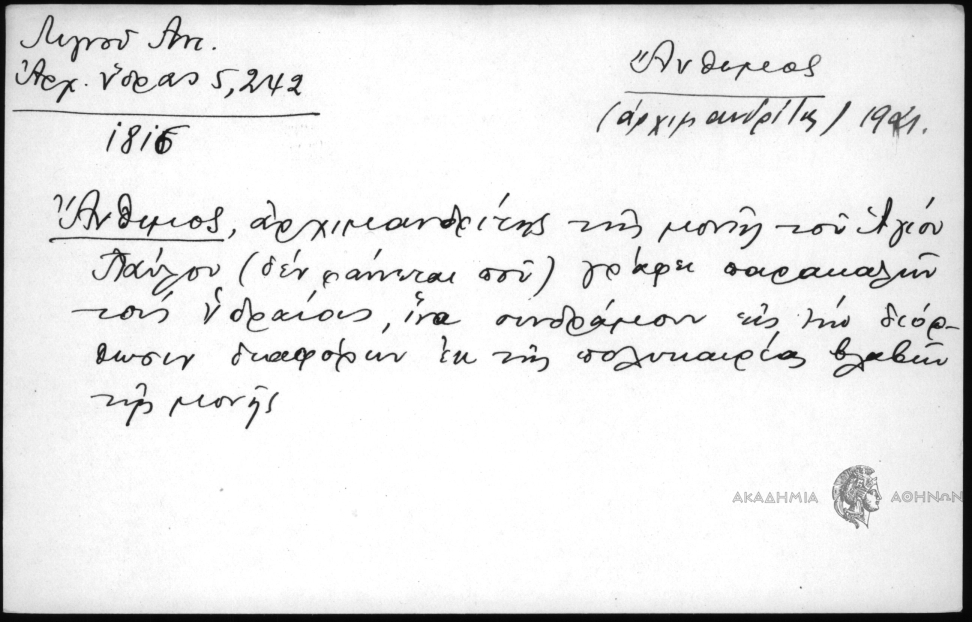 Λιγνοῦ Αντ.
Ἀρχ. Ὕδρας 5, 242
1816
Ἄνθιμος
(ἀρχιμανδρίτης)
Ἄνθιμος, ἀρχιμανδρίτης τῆς μονῆς τοῦ Ἁγίου
Παύλου (δέν φαίνεται ποῦ) γράφει παρακαλῶν
τούς Ὑδραίους, ἵνα συνδράμουν εἰς τήν διόρ-
θωσιν διαφόρων ἐκ τῆς πολυκαιρίας βλαβῶν
τῆς μονῆς
ΑΚΑΔΗΜΙΑ ΑΘΗΝΩΝ